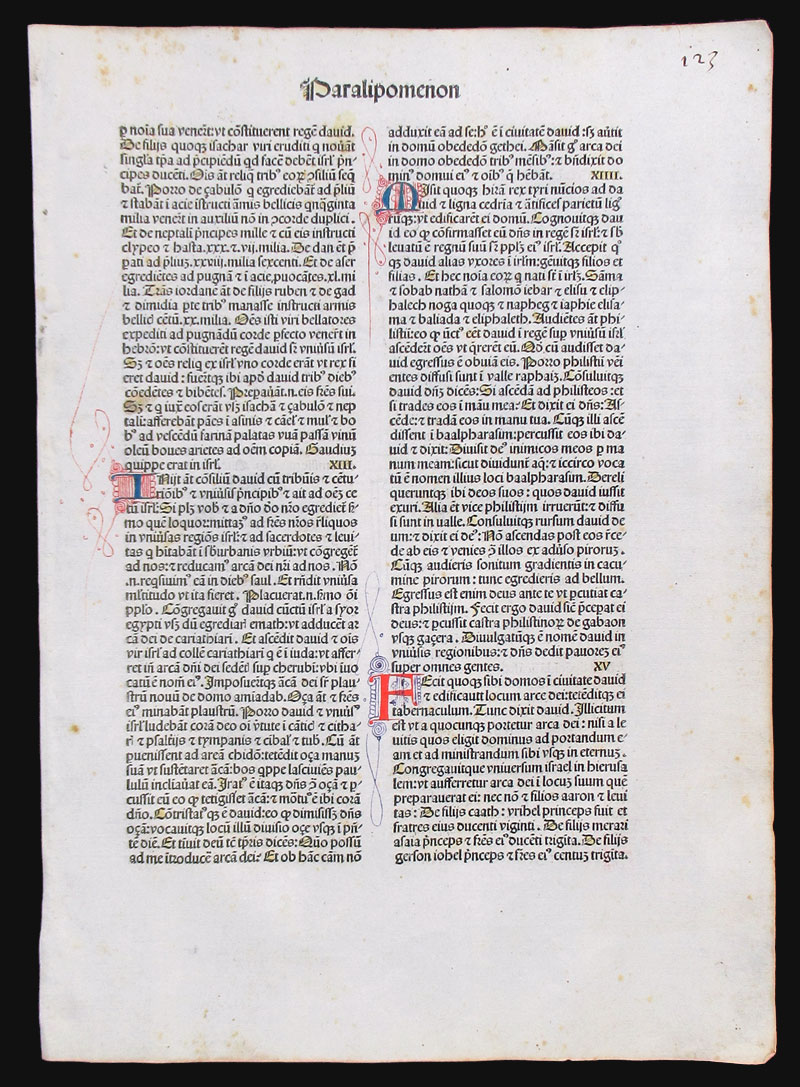 123
Paralipomenon
ꝑ noīa sua venerūt: vt cōstituerent regē david.
De filijs quoqꝫ isachar viri eruditi q nouāt
singla tꝑa ad p̄cipiēdū qd facē debēt isrl p̄n-
cipes ducēti. Ois āt reliq tribꝰ eoꝝ ɔsiliū seq̄
bāt. Porro de çabulō q egrediebāt ad p̄liū
⁊ stabāt ī acie īstructi āmis bellicis qnq̄ginta
milia venerūt in auxiliū nō in ɔcorde duplici.
Et de neptali p̄ncipes mille ⁊ cū eis instructi
clypeo ⁊ hasta.xxx.⁊.vij.milia. De dan ēt p̄
pati ad p̄liuꝫ.xxviij.milia sexcenti. Et de aser
egrediētes ad pugnā ⁊ ī acie ꝓuocātes.xl.mi
lia. Trās iordanē āt de filijs ruben ⁊ de gad
⁊ dimidia ꝑte tribꝰ manasse instructi armis
bellicꝭ cētū.xx.milia. Oēs isti viri bellatores
expediti ad pugnādū corde ꝑfecto venerūt in
hebrō: vt cōstituerēt regē david sꝑ vniūsū isrl.
Sꝫ ⁊ oēs reliq ex isrl vno corde erāt vt rex fi
eret dauid: fuerūtqꝫ ibi apđ dauid tribꝰ diebꝰ
cōedētes ⁊ bibētes. Prepaŕauāt.n.eis frēs sui.
Sꝫ ⁊ q iuxᵗ eos erāt vsqꝫ isachā ⁊ çabulō ⁊ nep
tali: afferebāt pāes ī asinis ⁊ cāel ⁊ mul ⁊ bo
bꝰ ad vescēdū farinā palatas vuā passā vinū
oleū boues arietes ad oēm copiā. Gaudiuꝫ
quippe erat in isrl. XIII.
INijt āt cōsiliū dauid cū tribūis ⁊ cētu-
riōibꝰ ⁊ vniūsis p̄ncipibꝰ ⁊ ait ad oēꝫ ce
tū isrl: Si plꝫ vob ⁊ a dn̄o đo nr̄o egredit̄ s̄-
mo quē loquor: mittaꝫ ad frēs nr̄os r̄liquos
in vniūsas regiōs isrl: ⁊ ad sacerdotes ⁊ leui-
tas q hītabāt ī sb̄urbanis vrbiū: vt cōgregēt̄
ad nos: ⁊ reducamꝰ arcā dei nr̄i ad nos. Nō
.n.reqsiuimꝰ eā in diebꝰ saul. Et rn̄dit vniūsa
ml̄titudo vt ita fieret. Placuerat.n.s̄mo oī
pplo. Cōgregauit gͦ dauid cūctū isrl a syor
egypti vsqꝫ dū egrediar̄ emath: vt adducēt ar
cā dei de cariathiari. Et ascēdit dauid ⁊ ois
vir isrl ad collē cariathiari q ē ī iuda: vt affer-
ret īn arcā dn̄i dei sedēt̄ sup cherubī: vbi iuo
catū ē nom̄ eiꝰ. Imposuerūtqꝫ āᵣcā dei sr̄ plau-
strū nouū de domo amiadab. Oça āt ⁊ frēs
eiꝰ minabāt plaustrū. Porro dauid ⁊ vniūsꝰ
isrl ludebāt corā deo oī vʳtute ī cātic ⁊ citha-
r̄ ⁊ psaltijs ⁊ tympanis ⁊ cībal ⁊ tub. Cū āt
ꝑuenissent ad areā chidō: tetēdit oça manuꝫ
suā vt sustētaret āᵣcā: bos qppe lasciuiēs pau-
lulū inclīauat eā. Iratꝰ ē itaqꝫ dn̄s ɔ oçā ⁊ ꝑ
cussit eū eo qͦ tetigisset āᵣcā: ⁊ mortuꝰ ē ibi corā
dn̄o. Cōtristatꝰqꝫ ē dauid: eo qͦ diuisissꝫ dn̄s
oçā: vocauitqꝫ locū illū diuisio oçe vsqꝫ ī p̄n̄-
tē diē. Et tīuit deū tē tp̄ris dicēs: Quō possū
ad me ītroducē arcā dei: Et ob hāc cām nō
adduxit eā ad se: hꝰ ē ī ciuitatē dauid: sꝫ aūtit
in domū obededō gethei. Māsit gͦ arca dei
in domo obededō tribꝰ mēsibꝰ: ⁊ bn̄dixit do
minꝰ domui eiꝰ ⁊ oībꝰ q̄ hēbāt. XIIII.
MIsit quoqꝫ hirā rex tyri nūcios ad da
uid ⁊ ligna cedria ⁊ ātifices parietū lig
rūqꝫ: vt edificarēt ei domū. Cognouitqꝫ dau
id eo qͦ cōfirmasset eū dn̄s in regē sꝑ isrl: ⁊ sb̄
leuatū ē regnū suū sꝑ pplꝫ eiꝰ isrl. Accepit qͦ
qꝫ dauid alias vxores ī irlm: gēuitqꝫ filios et
filias. Et hec noīa eoꝝ q nati st̄ ī irlꝫ. Sāma
⁊ sobab nathā ⁊ salomō iebar ⁊ elisu ⁊ elip-
halech noga quoqꝫ ⁊ napheg ⁊ iaphie elisa-
ma ⁊ baliada ⁊ eliphaleth. Audiētes āt phi-
listiī: eo qͦ ūctꝰ eēt dauid ī regē sup vniūsū isrl
ascēderūt oēs vt q̄rerēt eū. Qđ cū audisset da-
uid egressus ē obuiā eis. Porro philistiī vēi
entes diffusi sunt ī valle raphaiꝫ. Cōsuluitqꝫ
dauid dn̄ꝫ dicēs: Si ascēdā ad philisteos: et
si trades eos ī māu mea: Et dixit ei dn̄s: As-
cēde: ⁊ tradā eos in manu tua. Cūqꝫ illi ascē
dissent ī baalpharasim: percussit eos ibi da-
uid ⁊ dixit: Diuisit deꝰ inimicos meos ꝑ ma
num meam: sicut diuidunt̄ aq̄: ⁊ iccirco voca
tū ē nomen illius loci baalpharasim. Dereli
queruntqꝫ ibi deos suos: quos dauid iussit
exuri. Alia ēt vice philistijm irruerūt: ⁊ diffu
si sunt in ualle. Consuluitqꝫ rursum dauid de
um: ⁊ dixit ei deꝰ: Nō ascendas post eos rēce-
de ab eis ⁊ venies ɔ illos ex adūso piroruꝫ.
Cūqꝫ audieris sonitum gradientis in cacu-
mine pirorum: tunc egredieris ad bellum.
Egressus est enim deus ante te vt ꝑcutiat ca-
stra philistijm. Fecit ergo dauid sic̄ p̄cepat ei
deus: ⁊ ꝑcussit castra philistinoꝝ de gabaon
vsqꝫ gaçera. Diuulgatūqꝫ ē nomē dauid in
vniūsis regionibus: ⁊ dn̄s dedit pauoreꝫ eiꝰ
super omnes gentes. XV
FEcit quoqꝫ sibi domos ī ciuitate dauid
⁊ edificauit locum arce dei: tetēditqꝫ ei
tabernaculum. Tunc dixit dauid. Illicitum
est vt a quocunqꝫ portetur arca dei: nisi a le
uitis quos eligit dominus ad portandum e-
am et ad ministrandum sibi vsqꝫ in eternuꝫ.
Congregauitque vniuersum israel in hierusa
lem: vt aufferretur arca dei ī locuꝫ suum quē
preparauerat ei: nec nō ⁊ filios aaron ⁊ leui
tas: De filijs caath: vrihel princeps fuit et
fratres eius ducenti viginti. De filijs merari
asaia p̄nceps ⁊ frēs eiꝰ ducēti trīgita. De filijs
gerson iohel p̄nceps ⁊ frēs eiꝰ centuꝫ trīgita.